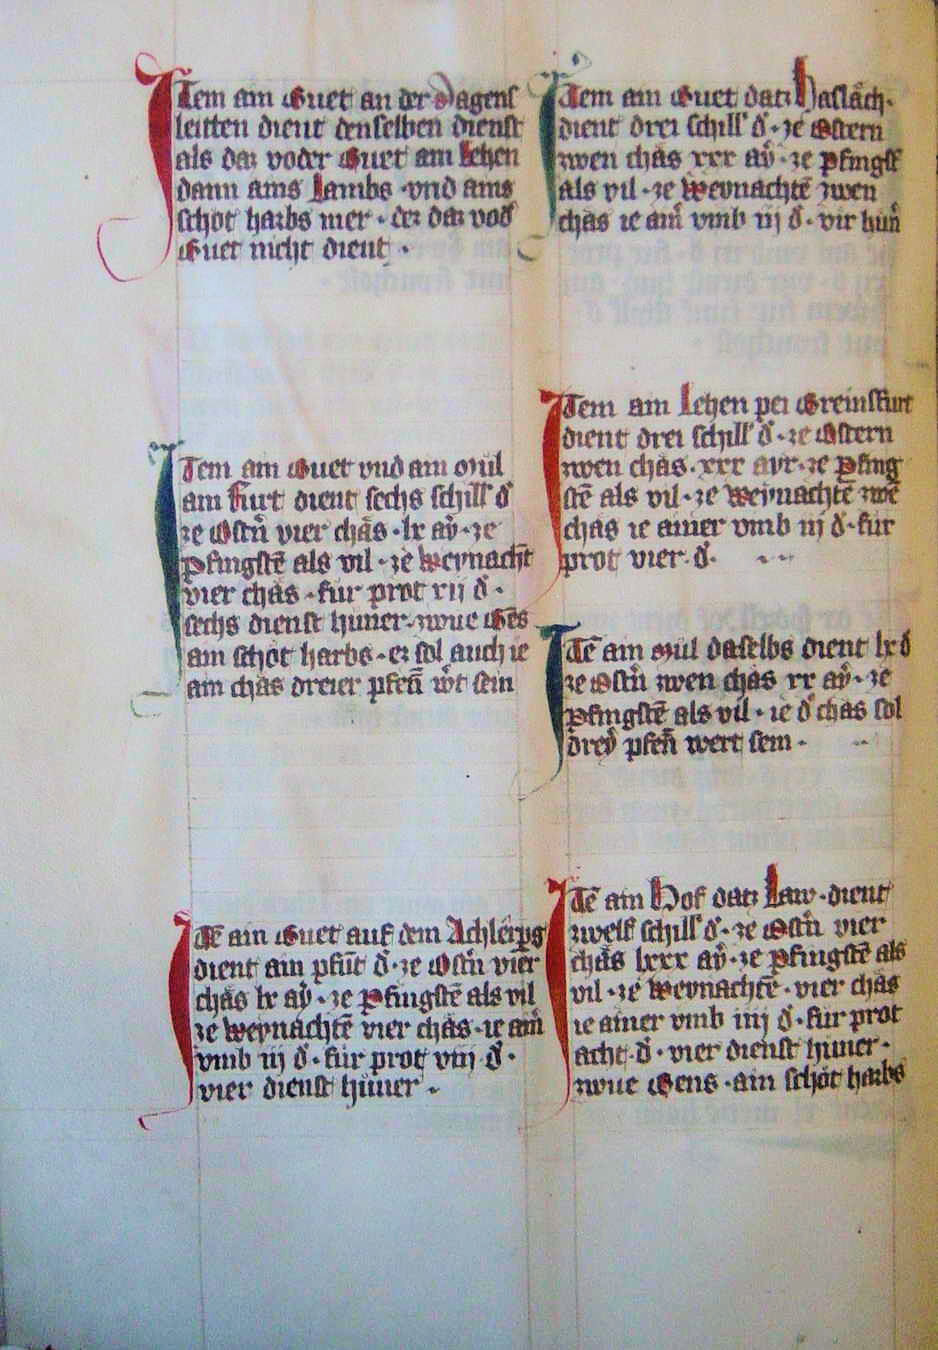 Item ain Guet an der Hagens
leitten dient denselben dienst
als daz voder Guet am Lehen
dann ains Lambs · vnd ains
schot harbs mer · dez daz vod
Guet nicht dient ·
Item ain Guet vnd ain Mül
am Furt dient sechs schill d
ze Ostn vier chas · lx ay · ze
Pfingste als vil · ze Weynacht
vier chas · fur prot xij d ·
sechs dienst huner · zwue Gēs
ain schot harbs · ez sol auch ie
ain chas dreier pfeñ wt sein
Itē ain Guet auf dem Achlerperg
dient ain pfūt d · ze Ostn vier
chas lx ay · ze Pfingstē als vil
ze Weynachtē vier chas · ie ain
vmb iij d · fur prot viij d ·
vier dienst huner ·
Item ain Guet datz Haslach ·
dient drei schill d · ze Ostern
zwen chas xxx ay · ze Pfingst
als vil · ze Weynachtē zwen
chas ie ain vmb iij d · vir hun
Item ain Lehen pei Greinsfurt
dient drei schill d · ze Ostern
zwen chas · xxx ayr · ze Pfing
stē als vil · ze Weynachtē zwē
chas ie ainer vmb iij d · fur
prot vier · d ·
Itē ain Mül daselbs dient lx d
ze Ostn zwen chas xx ay · ze
Pfingstē als vil · ie d chas sol
drey pfeñ wert sein ·
Itē ain Hof datz Law · dient
zwelf schill d · ze Ostn vier
chas lxxx ay · ze Pfingstē als
vil · ze Weynachtē · vier chas
ie ainer vmb iiij d · fur prot
acht · d · vier dienst huner ·
zwue Gens · ain schot harbs